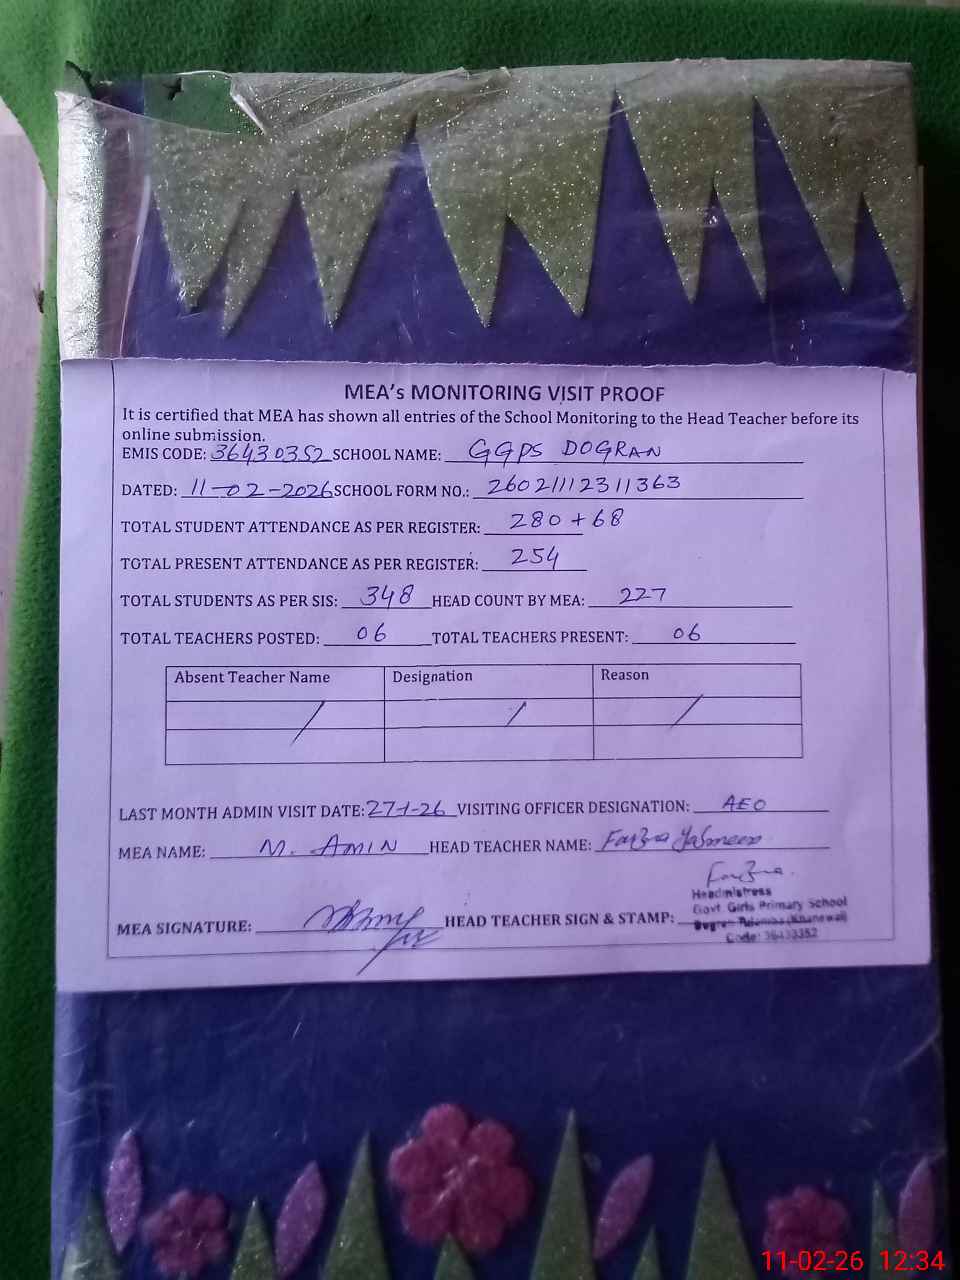 MEA's MONITORING VISIT PROOF
It is certified that MEA has shown all entries of the School Monitoring to the Head Teacher before its
online submission.
EMIS CODE: 36430352 SCHOOL NAME: GGPS DOGRAN
DATED: 11-02-2026 SCHOOL FORM NO.: 26021112311363
TOTAL STUDENT ATTENDANCE AS PER REGISTER: 280+68
TOTAL PRESENT ATTENDANCE AS PER REGISTER: 254
TOTAL STUDENTS AS PER SIS: 348 HEAD COUNT BY MEA: 227
TOTAL TEACHERS POSTED: 06 TOTAL TEACHERS PRESENT: 06
Absent Teacher Name Designation Reason
/ / /
LAST MONTH ADMIN VISIT DATE: 27-1-26 VISITING OFFICER DESIGNATION: AEO
MEA NAME: M. AMIN HEAD TEACHER NAME: Fouzia Yasmeen
Headmistress
Govt. Girls Primary School
MEA SIGNATURE: HEAD TEACHER SIGN & STAMP: Dogran (Khanewal)
Code:
11-02-26 12:34